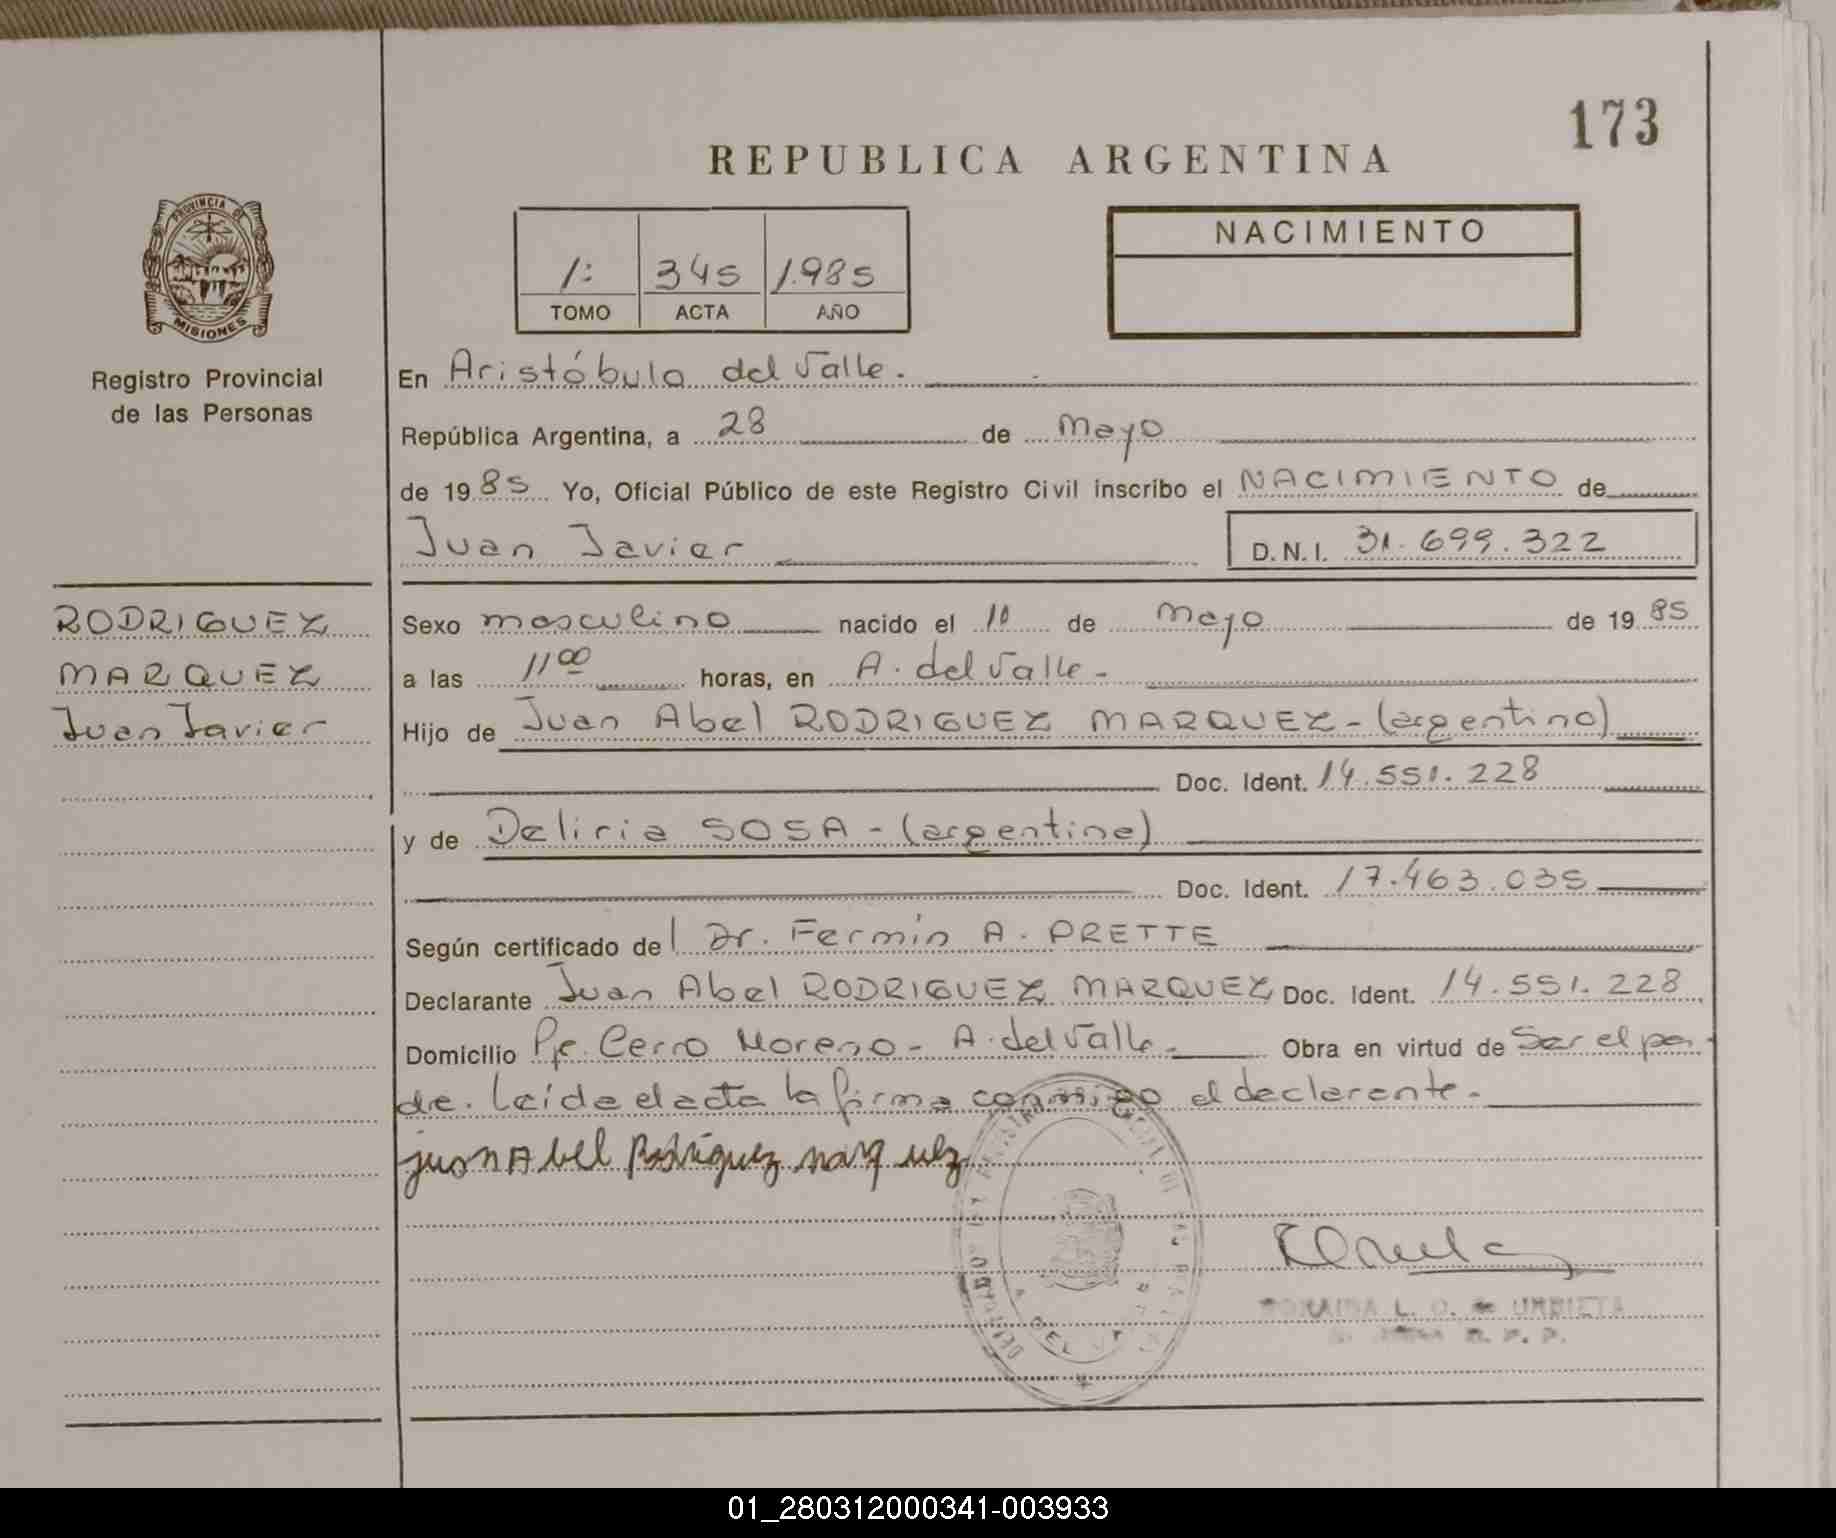 173
REPUBLICA ARGENTINA
PROVINCIA DE
MISIONES
Registro Provincial
de las Personas
1: 345 1.985
TOMO ACTA AÑO
NACIMIENTO
En Aristóbulo del Valle.
República Argentina, a 28 de Mayo
de 1985 Yo, Oficial Público de este Registro Civil inscribo el NACIMIENTO de
Juan Javier D.N.I. 31.699.322
RODRIGUEZ
MARQUEZ
Juan Javier
Sexo masculino nacido el 10 de Mayo de 1985
a las 11 00 horas, en A. del Valle-
Hijo de Juan Abel RODRIGUEZ MARQUEZ-(argentino)
Doc. Ident. 14.551.228
y de Deliria SOSA-(argentina)
Doc. Ident. 17.463.035
Según certificado del Dr. Fermín A. PRETTE
Declarante Juan Abel RODRIGUEZ MARQUEZ Doc. Ident. 14.551.228
Domicilio Pje. Cerro Moreno- A. del Valle- Obra en virtud de Ser el pa-
dre. Leída el acta la firma conmigo el declarante.-
juan Abel Rodríguez marquez
L. O. de URBIETA
01_280312000341-003933